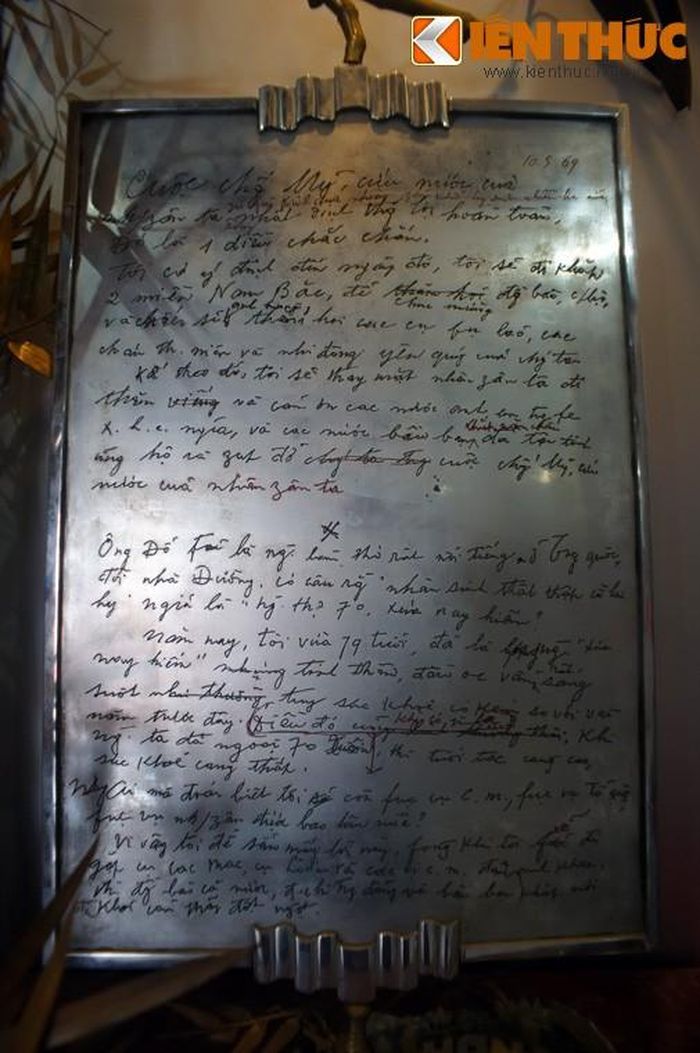 KIẾN THỨC
www.kienthuc.n
10.5.69
Cuộc chố̃ Mỹ, cứu nước của
nhân zân ta nhất định thg lợi hoàn toàn,
Đó là 1 điều chắc chắn.
Tôi có ý định đến ngày đó, tôi sẽ đi khắp
2 miền Nam Bắc, để chúc mừng đg bào,
và chiến sĩ anh hùng thăm hỏi các cụ fụ lão, các
cháu th. niên và nhi đồng yêu quý của
Kế theo đó, tôi sẽ thay mặt nhân zân ta đi
thăm và cám ơn các nước anh em fe
x. h. c. nghĩa, và các nước bầu bạn đã tận tình
ủng hộ và zúp đỡ cuộc Mỹ, cứu
nước của nhân zân ta
Ông Đỗ Fủ là ng. làm thơ rất nổi tiếng ở Tg quốc,
đời nhà Đường, có câu rg "nhân sinh thất thập cổ lai
hy" nghĩa là "ng. thọ 70, xưa nay hiếm"
Năm nay, tôi vừa 79 tuổi, đã là "xưa
nay hiếm" nhưng tinh thần, đầu óc vẫn sáng
suốt tuy sức khoẻ có kém so với vài
năm trước đây. Điều đó cũng
ng. ta đã ngoài 70 xuân, thì tuổi tác càng cao,
sức khoẻ càng thấp.
Ai mà đoán biết tôi sẽ còn fục vụ c. m., fục vụ tổ quốc
fục vụ nh/zân được bao lâu nữa?
Vì vậy tôi để sẵn mấy lời này, fòng khi tôi sẽ đi
gặp cụ Các Mác, cụ Lênin và các vị c. m. đàn anh khác,
thì đg bào cả nước, đ/chí tg đảng và bầu bạn khắp nơi
khỏi cảm thấy đột ngột.